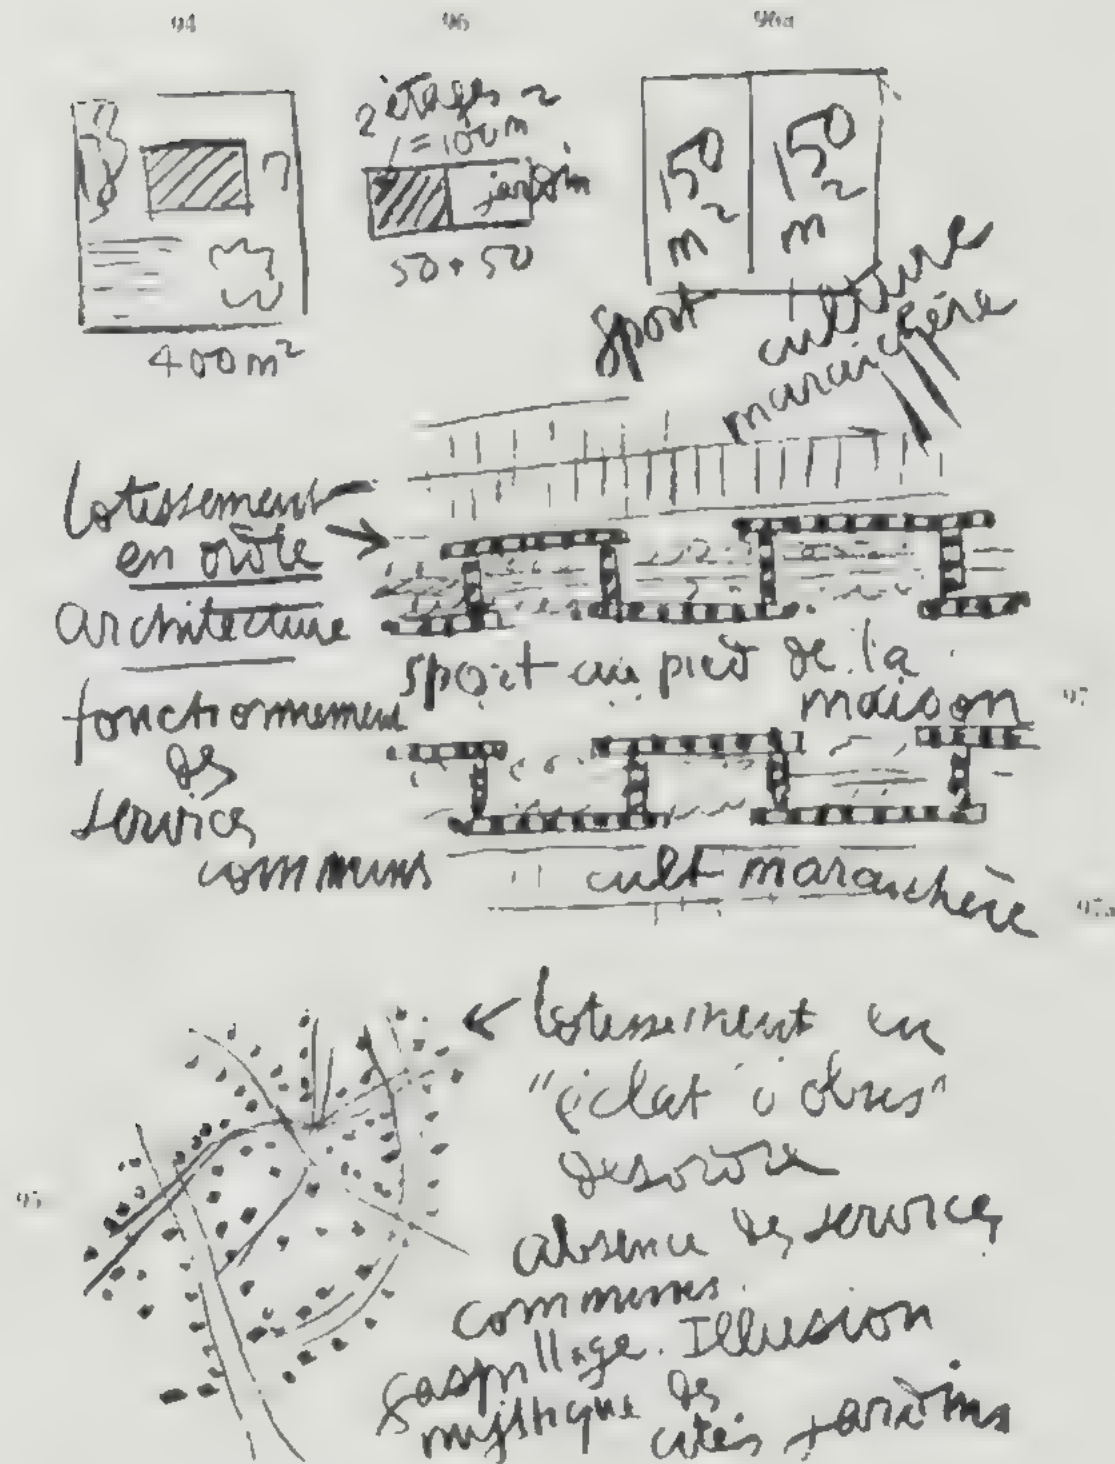 94
96
96a
2 étages
= 100 m²
jardin
50 + 50
400 m²
150 m²
150 m²
sport
culture
maraichère
lotissement
en ordre
architecture
fonctionnement
des
services
communs
sport au pied de la
maison
97
cult maraichère
97a
lotissement en
"éclat d'obus"
desordre
absence des services
communs.
gaspillage. Illusion
mystique des
cités jardins
95